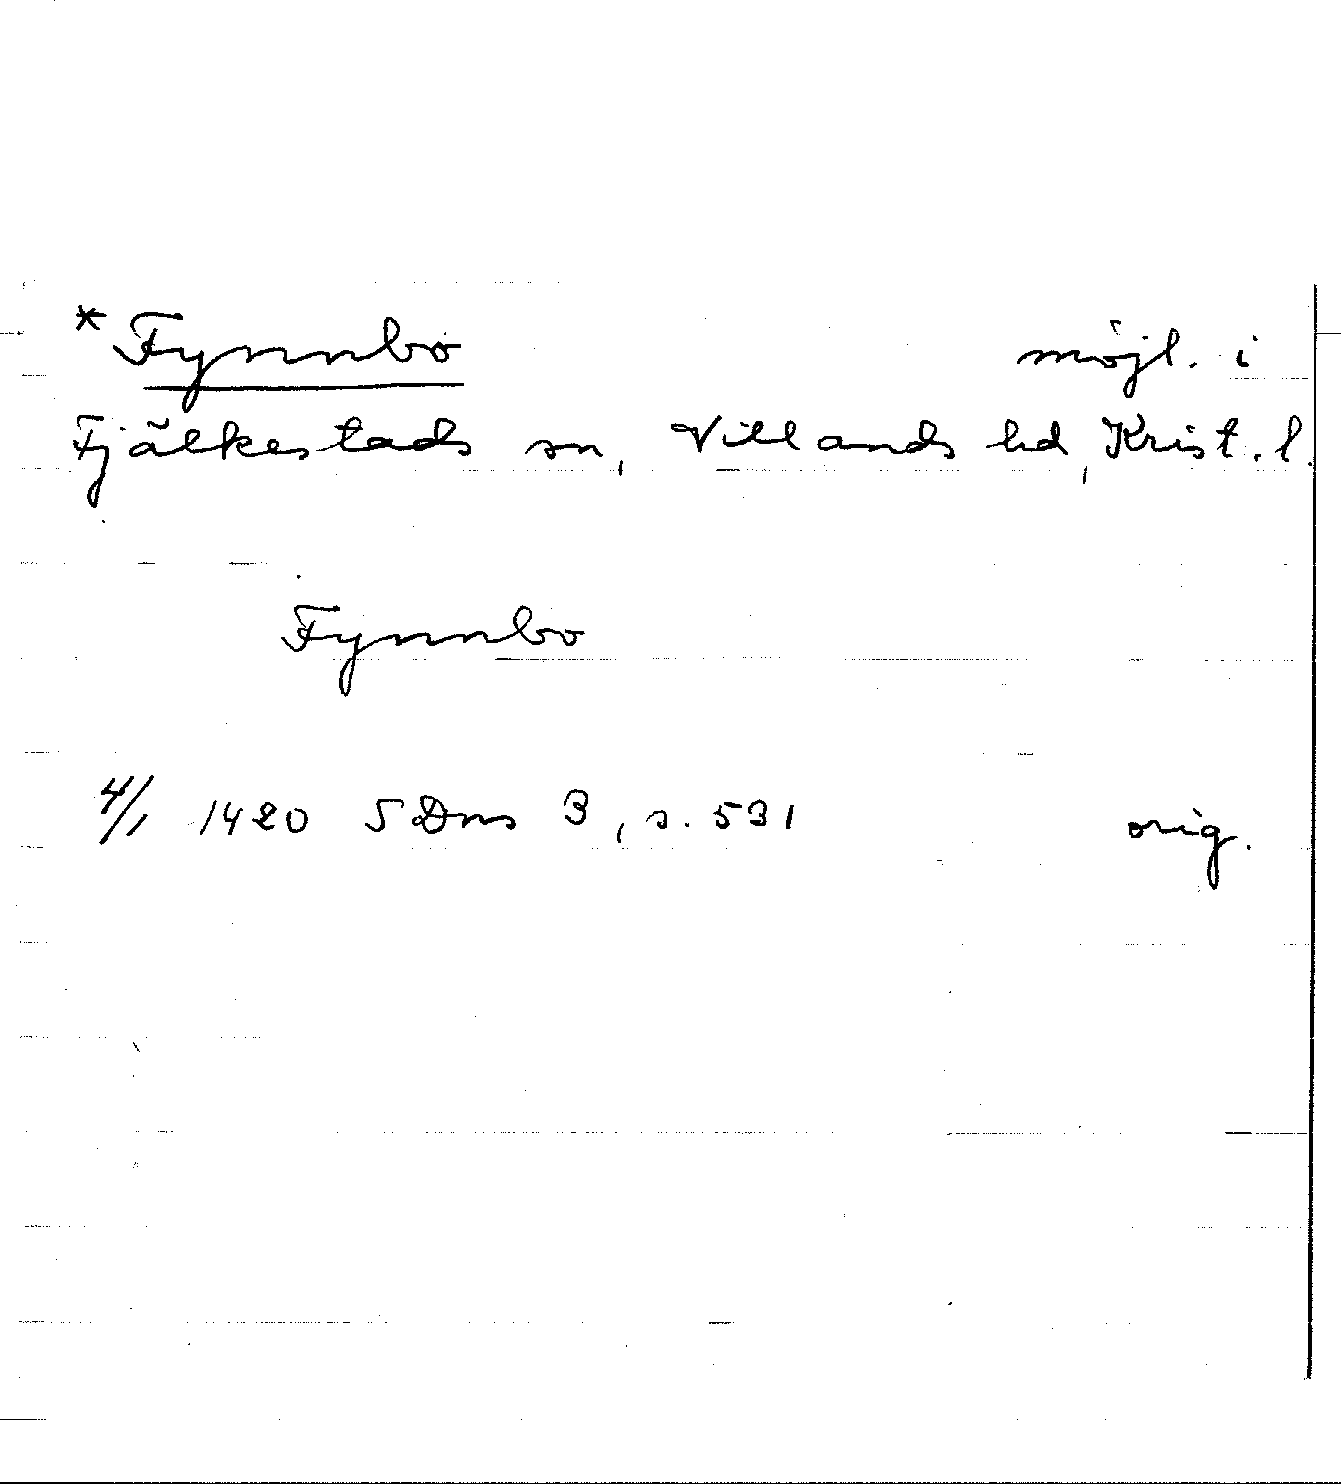 *Fynnbo möjl. i
Fjälkestads sn, Villands hd, Krist. l.
Fynnbo
4/1 1420 SDns 3, s. 531 orig.